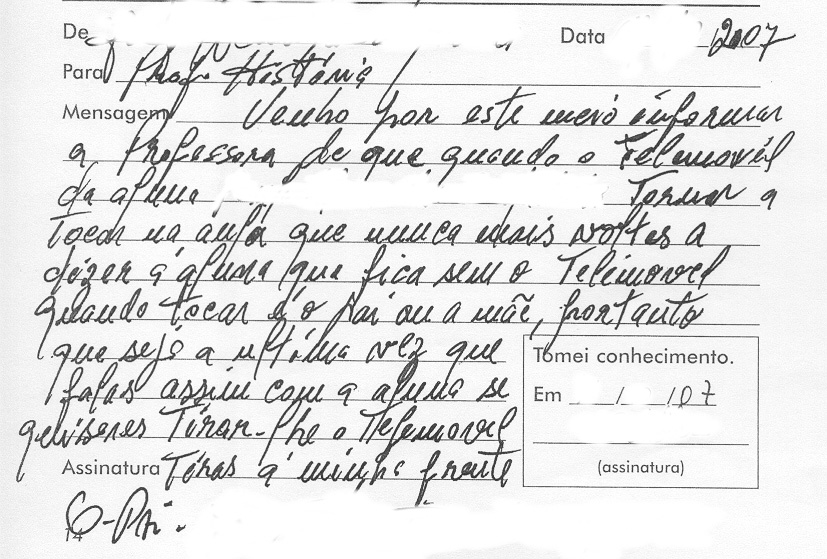 De Data 2007
Para Prof. História
Mensagem Venho por este meio informar
a Professora de que quando o Telemovél
da aluna Tornar a
Tocar na aula que nunca mais voltes a
dizer á aluna que fica sem o Telemovel
quando tocar é o pai ou a mãe, portanto
que seja a ultima vez que
falas assim com a aluna se
quiseres Tirar-lhe o Telemovel
Assinatura Tiras á minha frente
O-Pai.
14
Tomei conhecimento.
Em / /07
(assinatura)